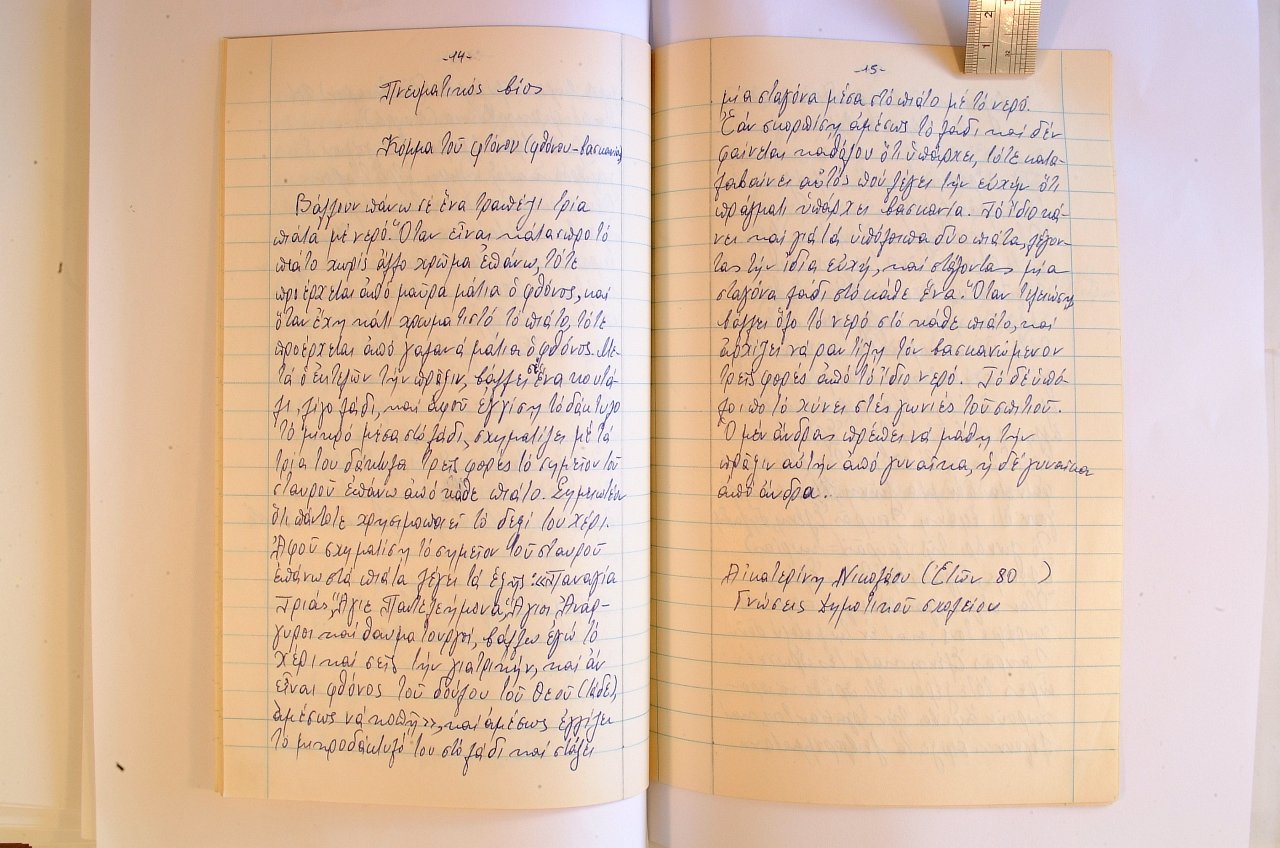 -14-
Πνευματικός βίος
Κόμμα τοῦ φτόνου (φθόνου-βασκανίας)
Βάλλουν πάνω σέ ἕνα τραπέζι τρία
πιάτα μέ νερό. Ὅταν εἶναι κάτασπρο τό
πιάτο χωρίς ἄλλο χρῶμα ἐπάνω, τότε
προέρχεται ἀπό μαῦρα μάτια ὁ φθόνος, καί
ὅταν ἔχη κάτι χρωματιστό τό πιάτο, τότε
προέρχεται ἀπό γαλανά μάτια ὁ φθόνος. Με-
τά ὁ ἐκτελῶν τήν πρᾶξιν, βάλλει σέ ἕνα κουτά-
λι, λίγο λάδι, καί ἀφοῦ ἐγγίση τό δάκτυλο
τό μικρό μέσα στό λάδι, σχηματίζει μέ τά
τρία του δάκτυλα τρεῖς φορές τό σημεῖον τοῦ
σταυροῦ ἐπάνω ἀπό κάθε πιάτο. Σημειωτέον
ὅτι πάντοτε χρησιμοποιεῖ τό δεξί του χέρι.
Ἀφοῦ σχηματίση τό σημεῖον τοῦ σταυροῦ
ἐπάνω στά πιάτα λέγει τά ἑξῆς: «Παναγία
Τριάς, Ἅγιε Παντελεήμονα, Ἅγιοι Ἀνάρ-
γυροι καί θαυματουργοί, βάλλω ἐγώ τό
χέρι καί σεῖς τήν γιατρικήν, καί ἄν
εἶναι φθόνος τοῦ δούλου τοῦ Θεοῦ (τάδε),
ἀμέσως νά κοπῆ», καί ἀμέσως ἐγγίζει
τό μικροδάκτυλό του στό λάδι καί στάζει
-15-
μία σταγόνα μέσα στό πιάτο μέ τό νερό.
Ἐάν σκορπίση ἀμέσως τό λάδι καί δέν
φαίνεται καθόλου ὅτι ὑπάρχει, τότε κατα-
λαβαίνει αὐτός πού λέγει τήν εὐχήν ὅτι
πράγματι ὑπάρχει βασκανία. Τό ἴδιο κά-
νει καί γιά τά ὑπόλοιπα δύο πιάτα, λέγον-
τας τήν ἴδια εὐχή, καί στάζοντας μία
σταγόνα λάδι στό κάθε ἕνα. Ὅταν τελειώση
βάλλει ὅλο τό νερό στό κάθε πιάτο, καί
ἀρχίζει νά ραντίζη τόν βασκανώμενον
τρεῖς φορές ἀπό τό ἴδιο νερό. Τό δέ ὑπό-
λοιπο τό χύνει στές γωνιές τοῦ σπιτιοῦ.
Ὁ μέν ἄνδρας πρέπει νά μάθη τήν
πρᾶξιν αὐτήν ἀπό γυναῖκα, ἡ δέ γυναίκα
ἀπό ἄνδρα.
Αἰκατερίνη Νικολάου (Ἐτῶν 80 )
Γνώσεις Δημοτικοῦ σχολείου